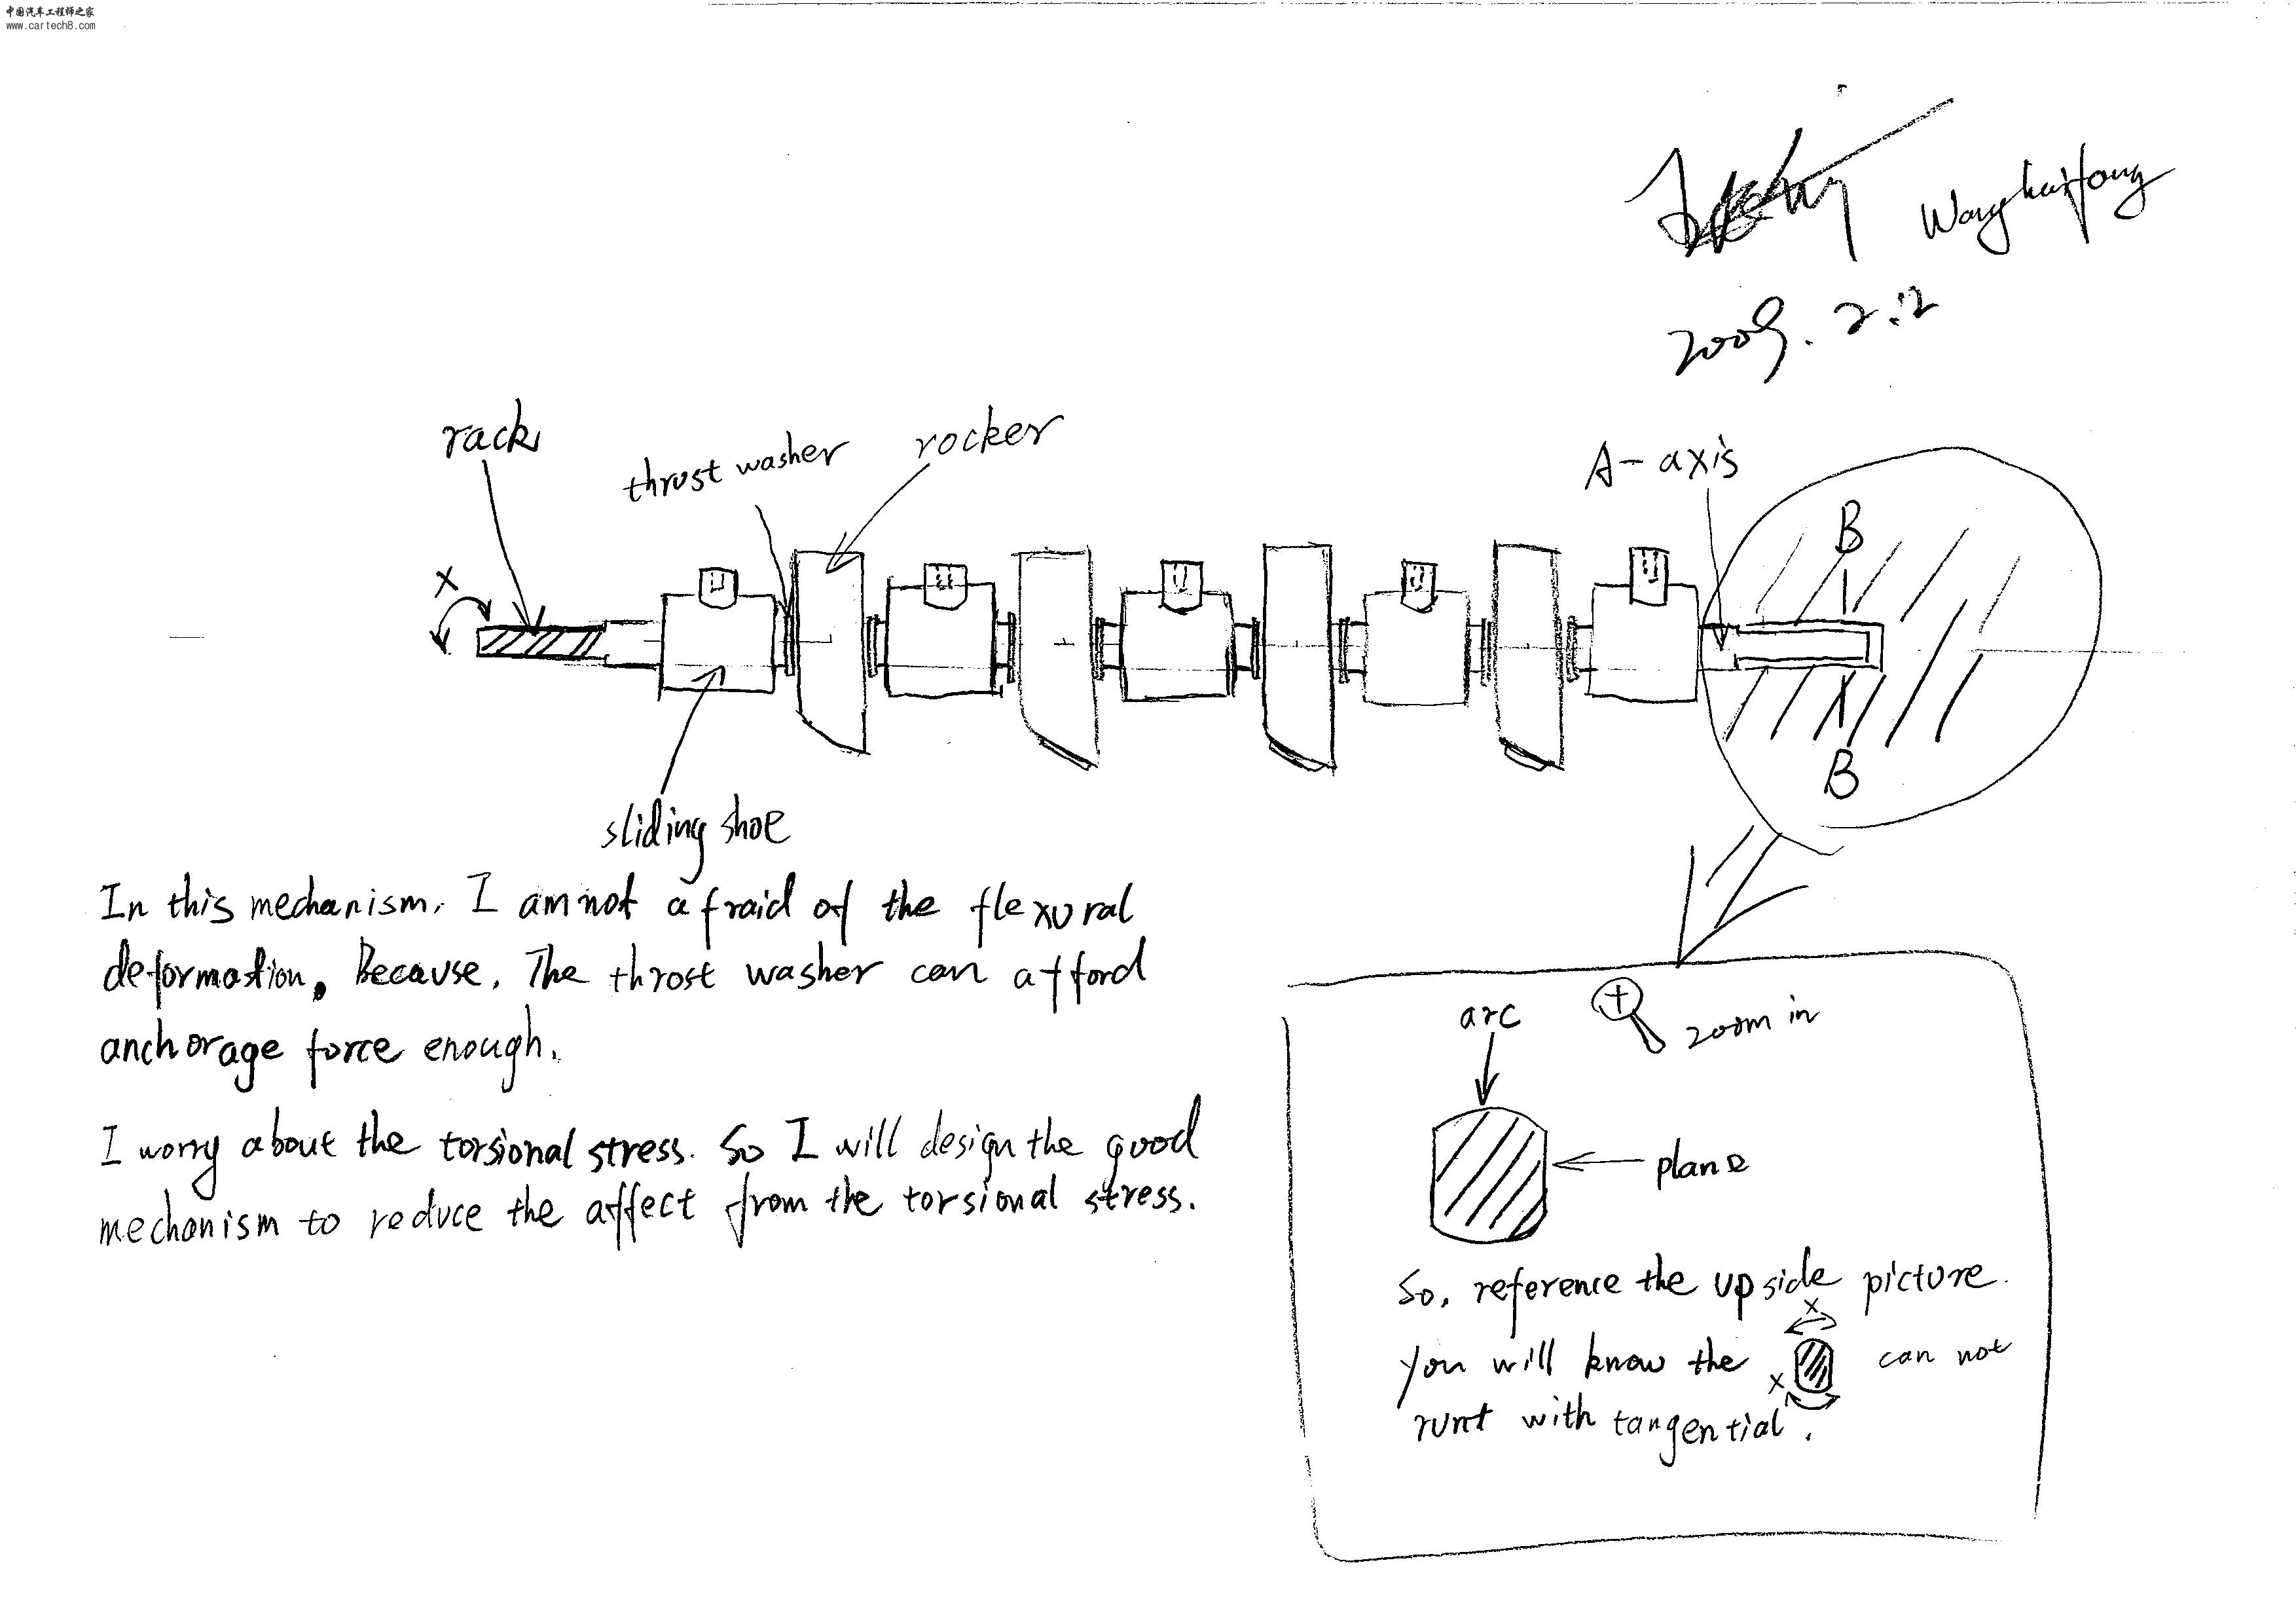 中国汽车工程师之家
www.cartech8.com
Wanghaifong
2009.2.12
rack
thrust washer
rocker
A-axis
X
B
B
sliding shoe
In this mechanism. I am not afraid of the flexural
deformation. Because. The throst washer can afford
anchorage force enough.
I worry about the torsional stress. So I will design the good
mechanism to reduce the affect from the torsional stress.
zoom in
arc
plane
So, reference the upside picture.
X
you will know the can not
X
runt with tangential.